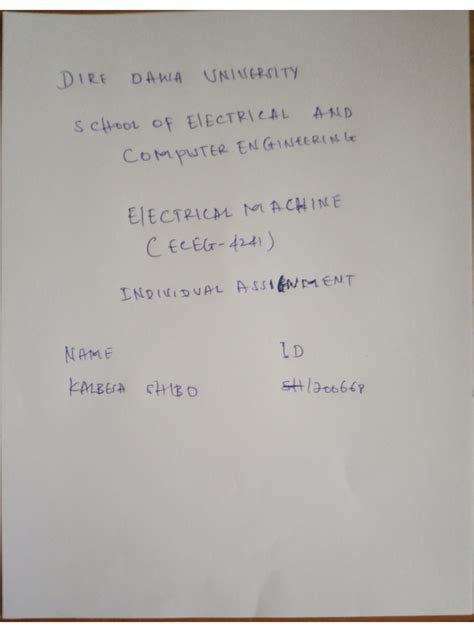 DIRE DAWA UNIVERSITY
SCHOOL OF ElECTRICAL AND
COMPUTER ENGINEERING
ElECTRICAL MACHINE
(ECEG-4241)
INDIVIDUAL ASSIGNMENT
NAME ID
KALBESA SHIBO /200668